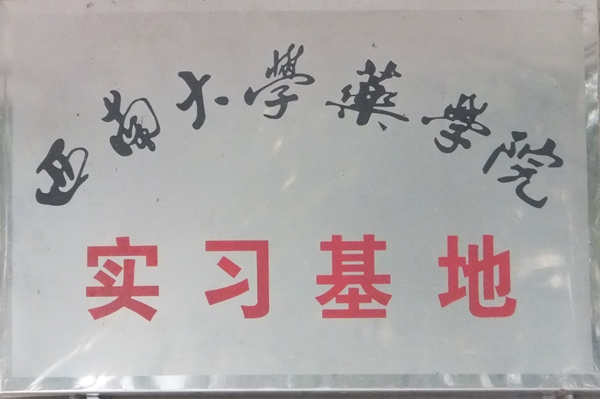 西南大學藥學院
实习基地